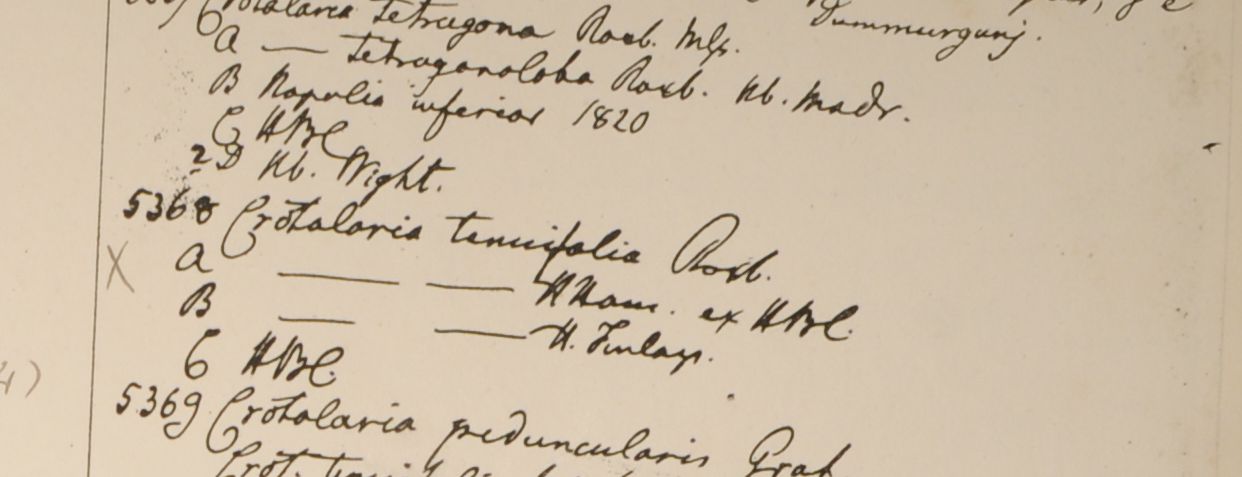 Crotalaria tetragona Roxb. Mss. Dummurgunj.
a — tetragonoloba Roxb. Hb. Madr.
B Napalia inferior 1820
C HBC
2D Hb. Wight.
5368 Crotalaria tenuifolia Roxb.
X a — — HHam. ex HBC
B — — H. Finlays.
C HBC
5369 Crotalaria peduncularis Grah
Crot.